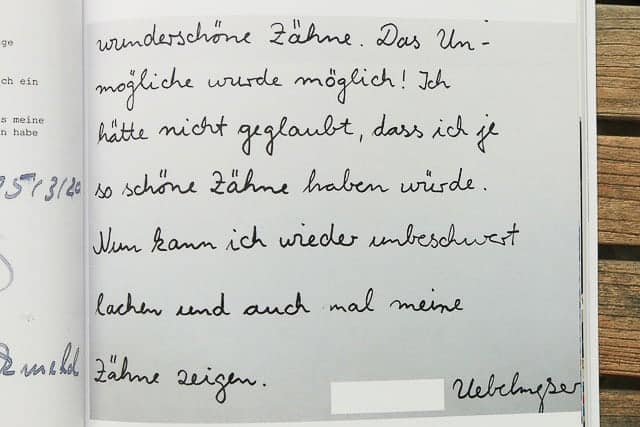 wunderschöne Zähne. Das Un-
mögliche wurde möglich! Ich
hätte nicht geglaubt, dass ich je
so schöne Zähne haben würde.
Nun kann ich wieder unbeschwert
lachen und auch mal meine
Zähne zeigen.
ge
ch ein
s meine
n habe